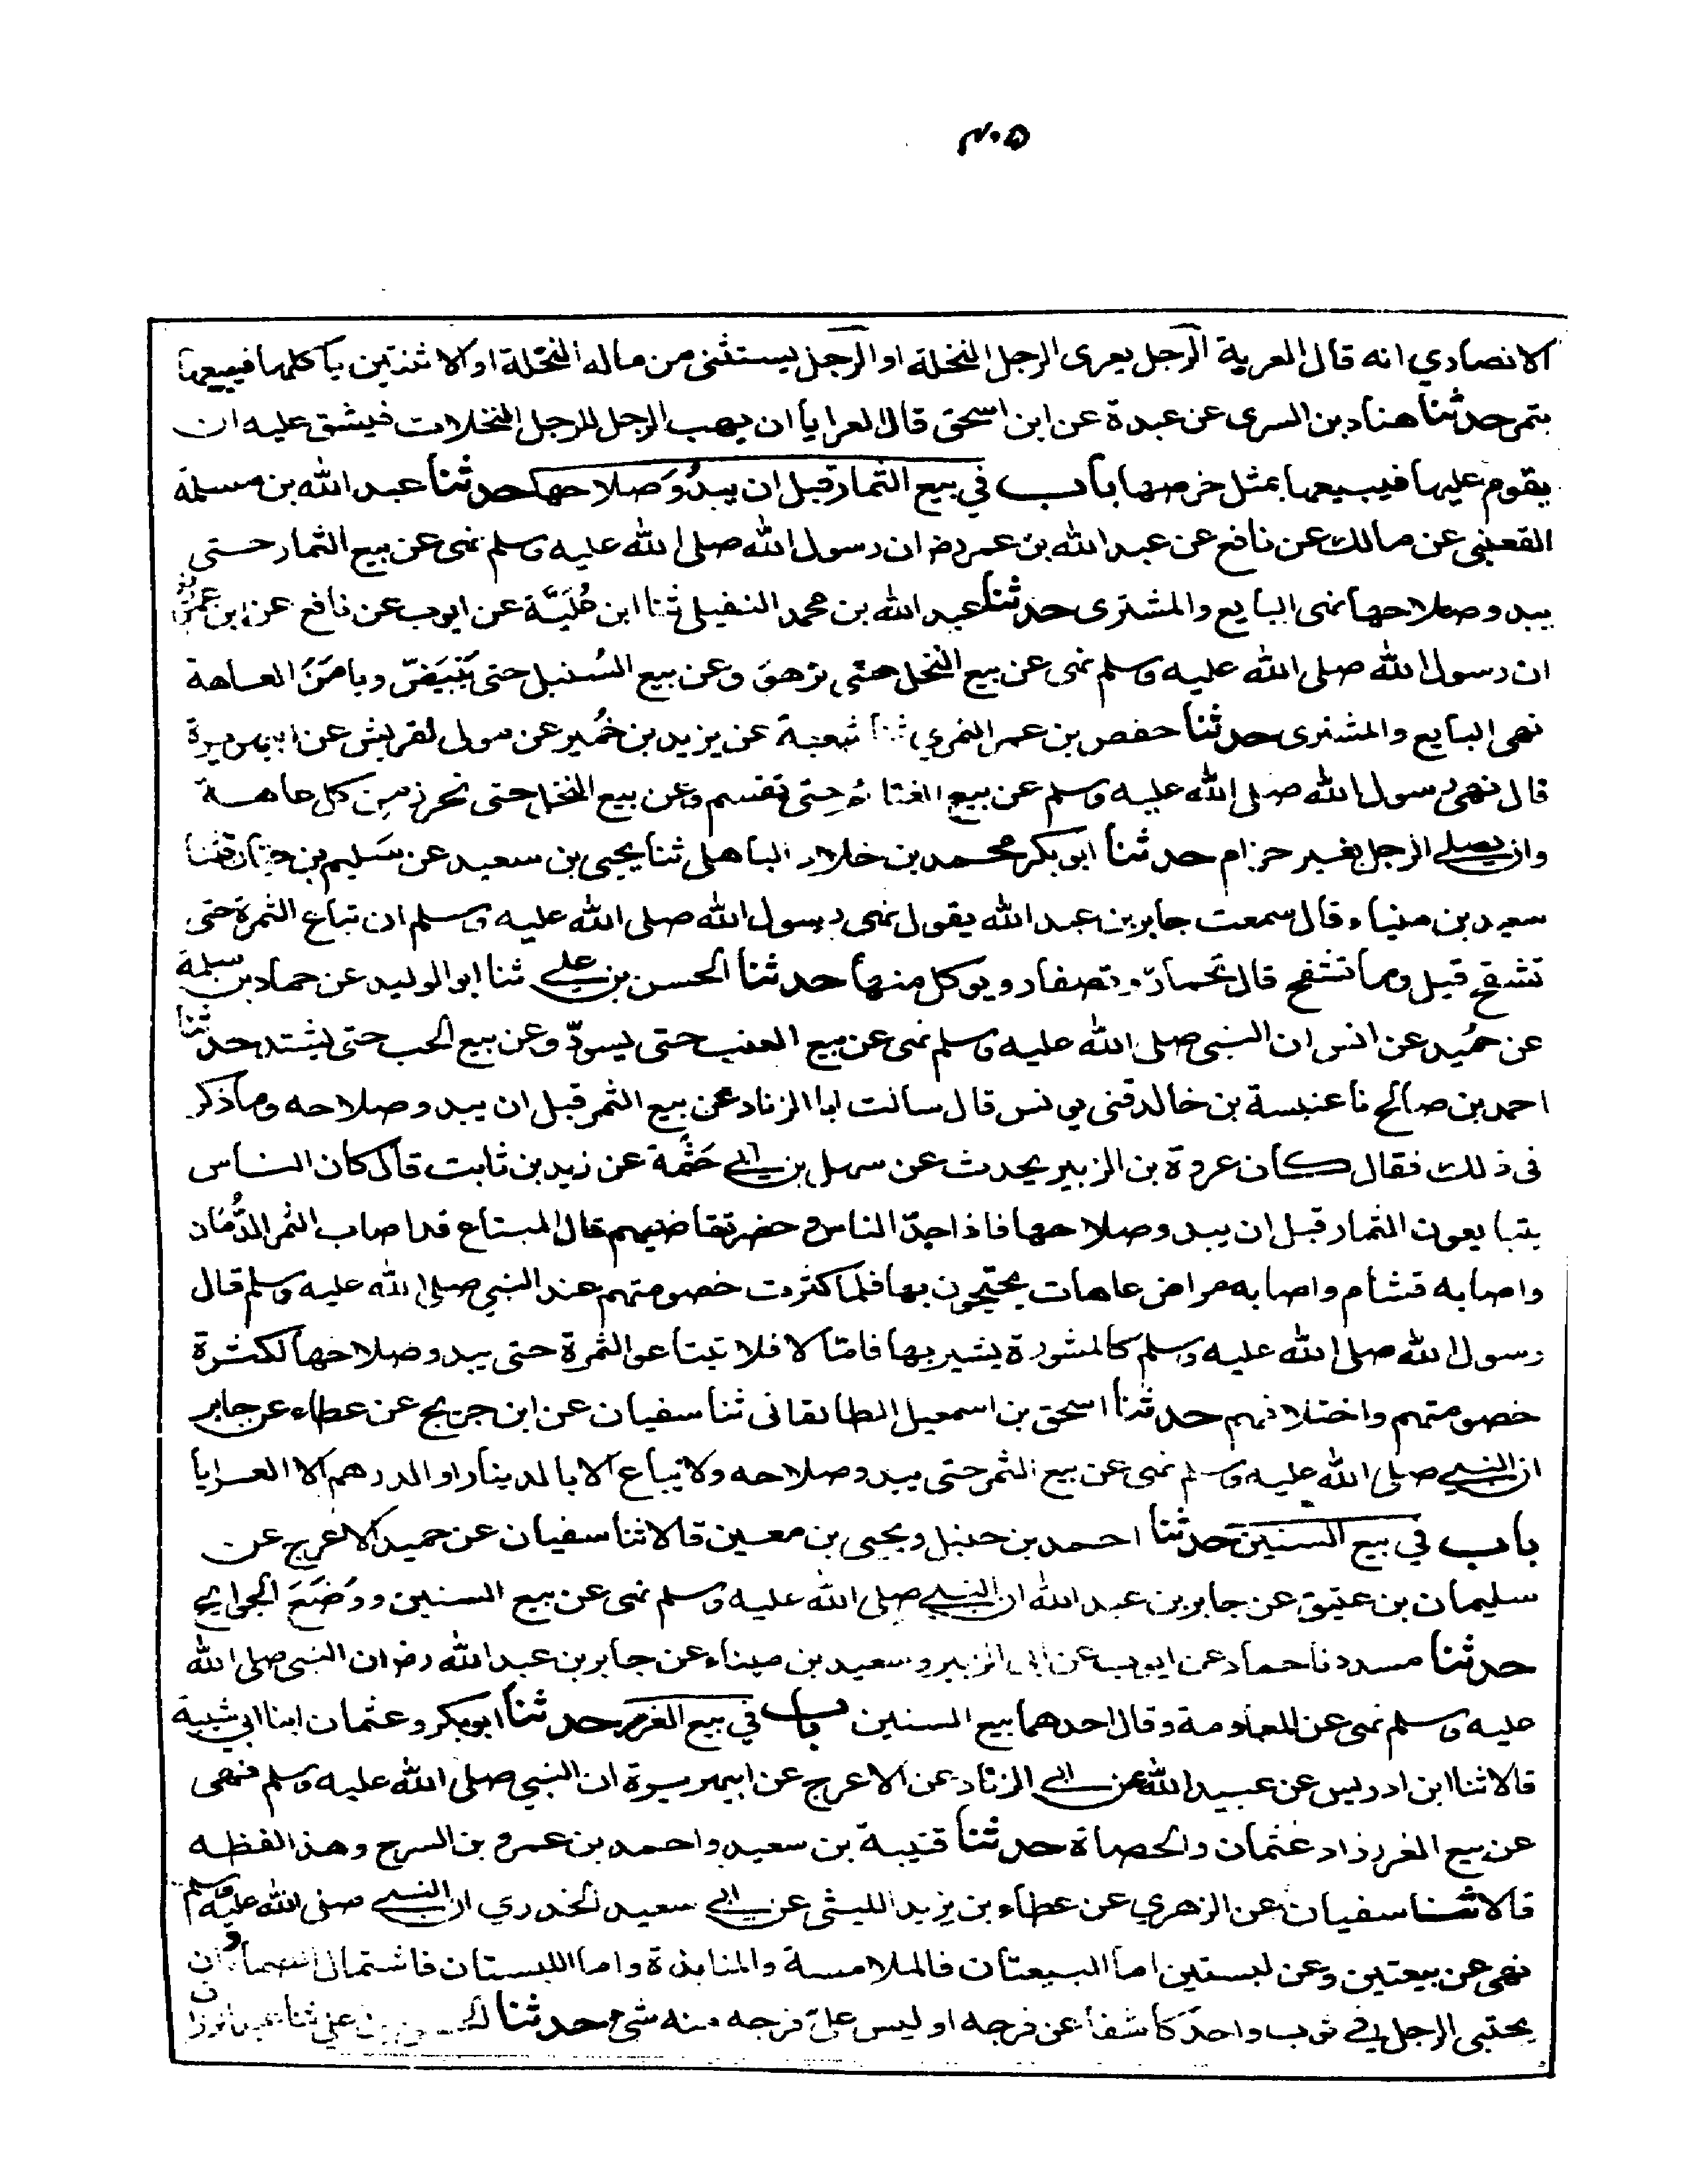 ٤٠٥
الانصاري انه قال العرية الرجل يعرى الرجل النخلة او الرجل يستثنى من ماله النخلة او الاثنتين ياكلها فيبيعها
بتمر حدثنا هناد بن السرى عن عبدة عن ابن اسحق قال العرايا ان يهب الرجل للرجل النخلات فيشق عليه ان
يقوم عليها فيبيعها بمثل خرصها باب في بيع الثمار قبل ان يبدُوَ صلاحها حدثنا عبد الله بن مسلمة
القعنبى عن مالك عن نافع عن عبد الله بن عمر رض ان رسول الله صلى الله عليه وسلم نهى عن بيع الثمار حتى
يبدو صلاحها نهى البايع والمشترى حدثنا عبد الله بن محمد النفيلى ثنا ابن عُلَيَّة عن ايوب عن نافع عن ابن عمر رض
ان رسول الله صلى الله عليه وسلم نهى عن بيع النخل حتى تزهوَ وعن بيع السُنبل حتى يَبْيَضّ ويامَنَ العاهة
نهى البايع والمشترى حدثنا حفص بن عمر النمري ثنا شعبة عن يزيد بن خُمير عن مولى لقريش عن ابى هريرة
قال نهى رسول الله صلى الله عليه وسلم عن بيع الغنائم حتى تقسم وعن بيع النخل حتى تحرز من كل عاهة
وان يصلي الرجل بغير حزام حدثنا ابوبكر محمد بن خلاد الباهلى ثنا يحيى بن سعيد عن سَليم بن حيان ثنا
سعيد بن ميناء قال سمعت جابر بن عبد الله يقول نهى رسول الله صلى الله عليه وسلم ان تباع الثمرة حتى
تشقح قيل وما تشقح قال تحمارّ وتصفار ويوكل منها حدثنا الحسن بن علي ثنا ابو الوليد عن حماد بن سلمة
عن حُميد عن انس ان النبى صلى الله عليه وسلم نهى عن بيع العنب حتى يسودّ وعن بيع الحب حتى يشتد حدثنا
احمد بن صالح نا عنبسة بن خالد ثنى يونس قال سالت ابا الزناد عن بيع الثمر قبل ان يبدو صلاحه وما ذكر
فى ذلك فقال كان عروة بن الزبير يحدث عن سهل بن ابي حَثْمة عن زيد بن ثابت قال كان الناس
يتبايعون الثمار قبل ان يبدو صلاحها فاذا جدّ الناس وحضر تقاضيهم قال المبتاع قد اصاب الثمر الدُّمَان
واصابه قشام واصابه مراض عاهات يحتجون بها فلما كثرت خصومتهم عند النبي صلى الله عليه وسلم قال
رسول الله صلى الله عليه وسلم كالمشورة يشير بها فامّا لا فلا تبتاعوا الثمرة حتى يبدو صلاحها لكثرة
خصومتهم واختلافهم حدثنا اسحق بن اسمعيل الطالقانى ثنا سفيان عن ابن جريج عن عطاء عن جابر
ان النبي صلى الله عليه وسلم نهى عن بيع الثمر حتى يبدو صلاحه ولا يباع الا بالدينار او الدرهم الا العرايا
باب في بيع السنين حدثنا احمد بن حنبل ويحيى بن معين قالا ثنا سفيان عن حميد الاعرج عن
سليمان بن عتيق عن جابر بن عبد الله ان النبي صلى الله عليه وسلم نهى عن بيع السنين ووَضَعَ الجوايح
حدثنا مسدد نا حماد عن ايوب عن ابى الزبير وسعيد بن ميناء عن جابر بن عبد الله رض ان النبى صلى الله
عليه وسلم نهى عن المعاومة وقال احدهما بيع السنين باب في بيع الغرر حدثنا ابوبكر وعثمان ابنا ابي شيبة
قالا ثنا ابن ادريس عن عبيد الله عن ابي الزناد عن الاعرج عن ابيهريرة ان النبي صلى الله عليه وسلم نهى
عن بيع الغرر زاد عثمان والحصاة حدثنا قتيبة بن سعيد واحمد بن عمرو بن السرح وهذا لفظه
قالا ثنا سفيان عن الزهري عن عطاء بن يزيد الليثى عن ابي سعيد الخدري ان النبي صلى الله عليه وسلم
نهى عن بيعتين وعن لبستين اما البيعتان فالملامسة والمنابذة واما اللبستان فاشتمال الصماء وان
يحتبى الرجل في ثوب واحد كاشفا عن فرجه او ليس على فرجه منه شئ حدثنا الحسن بن علي ثنا عبد الرزاق